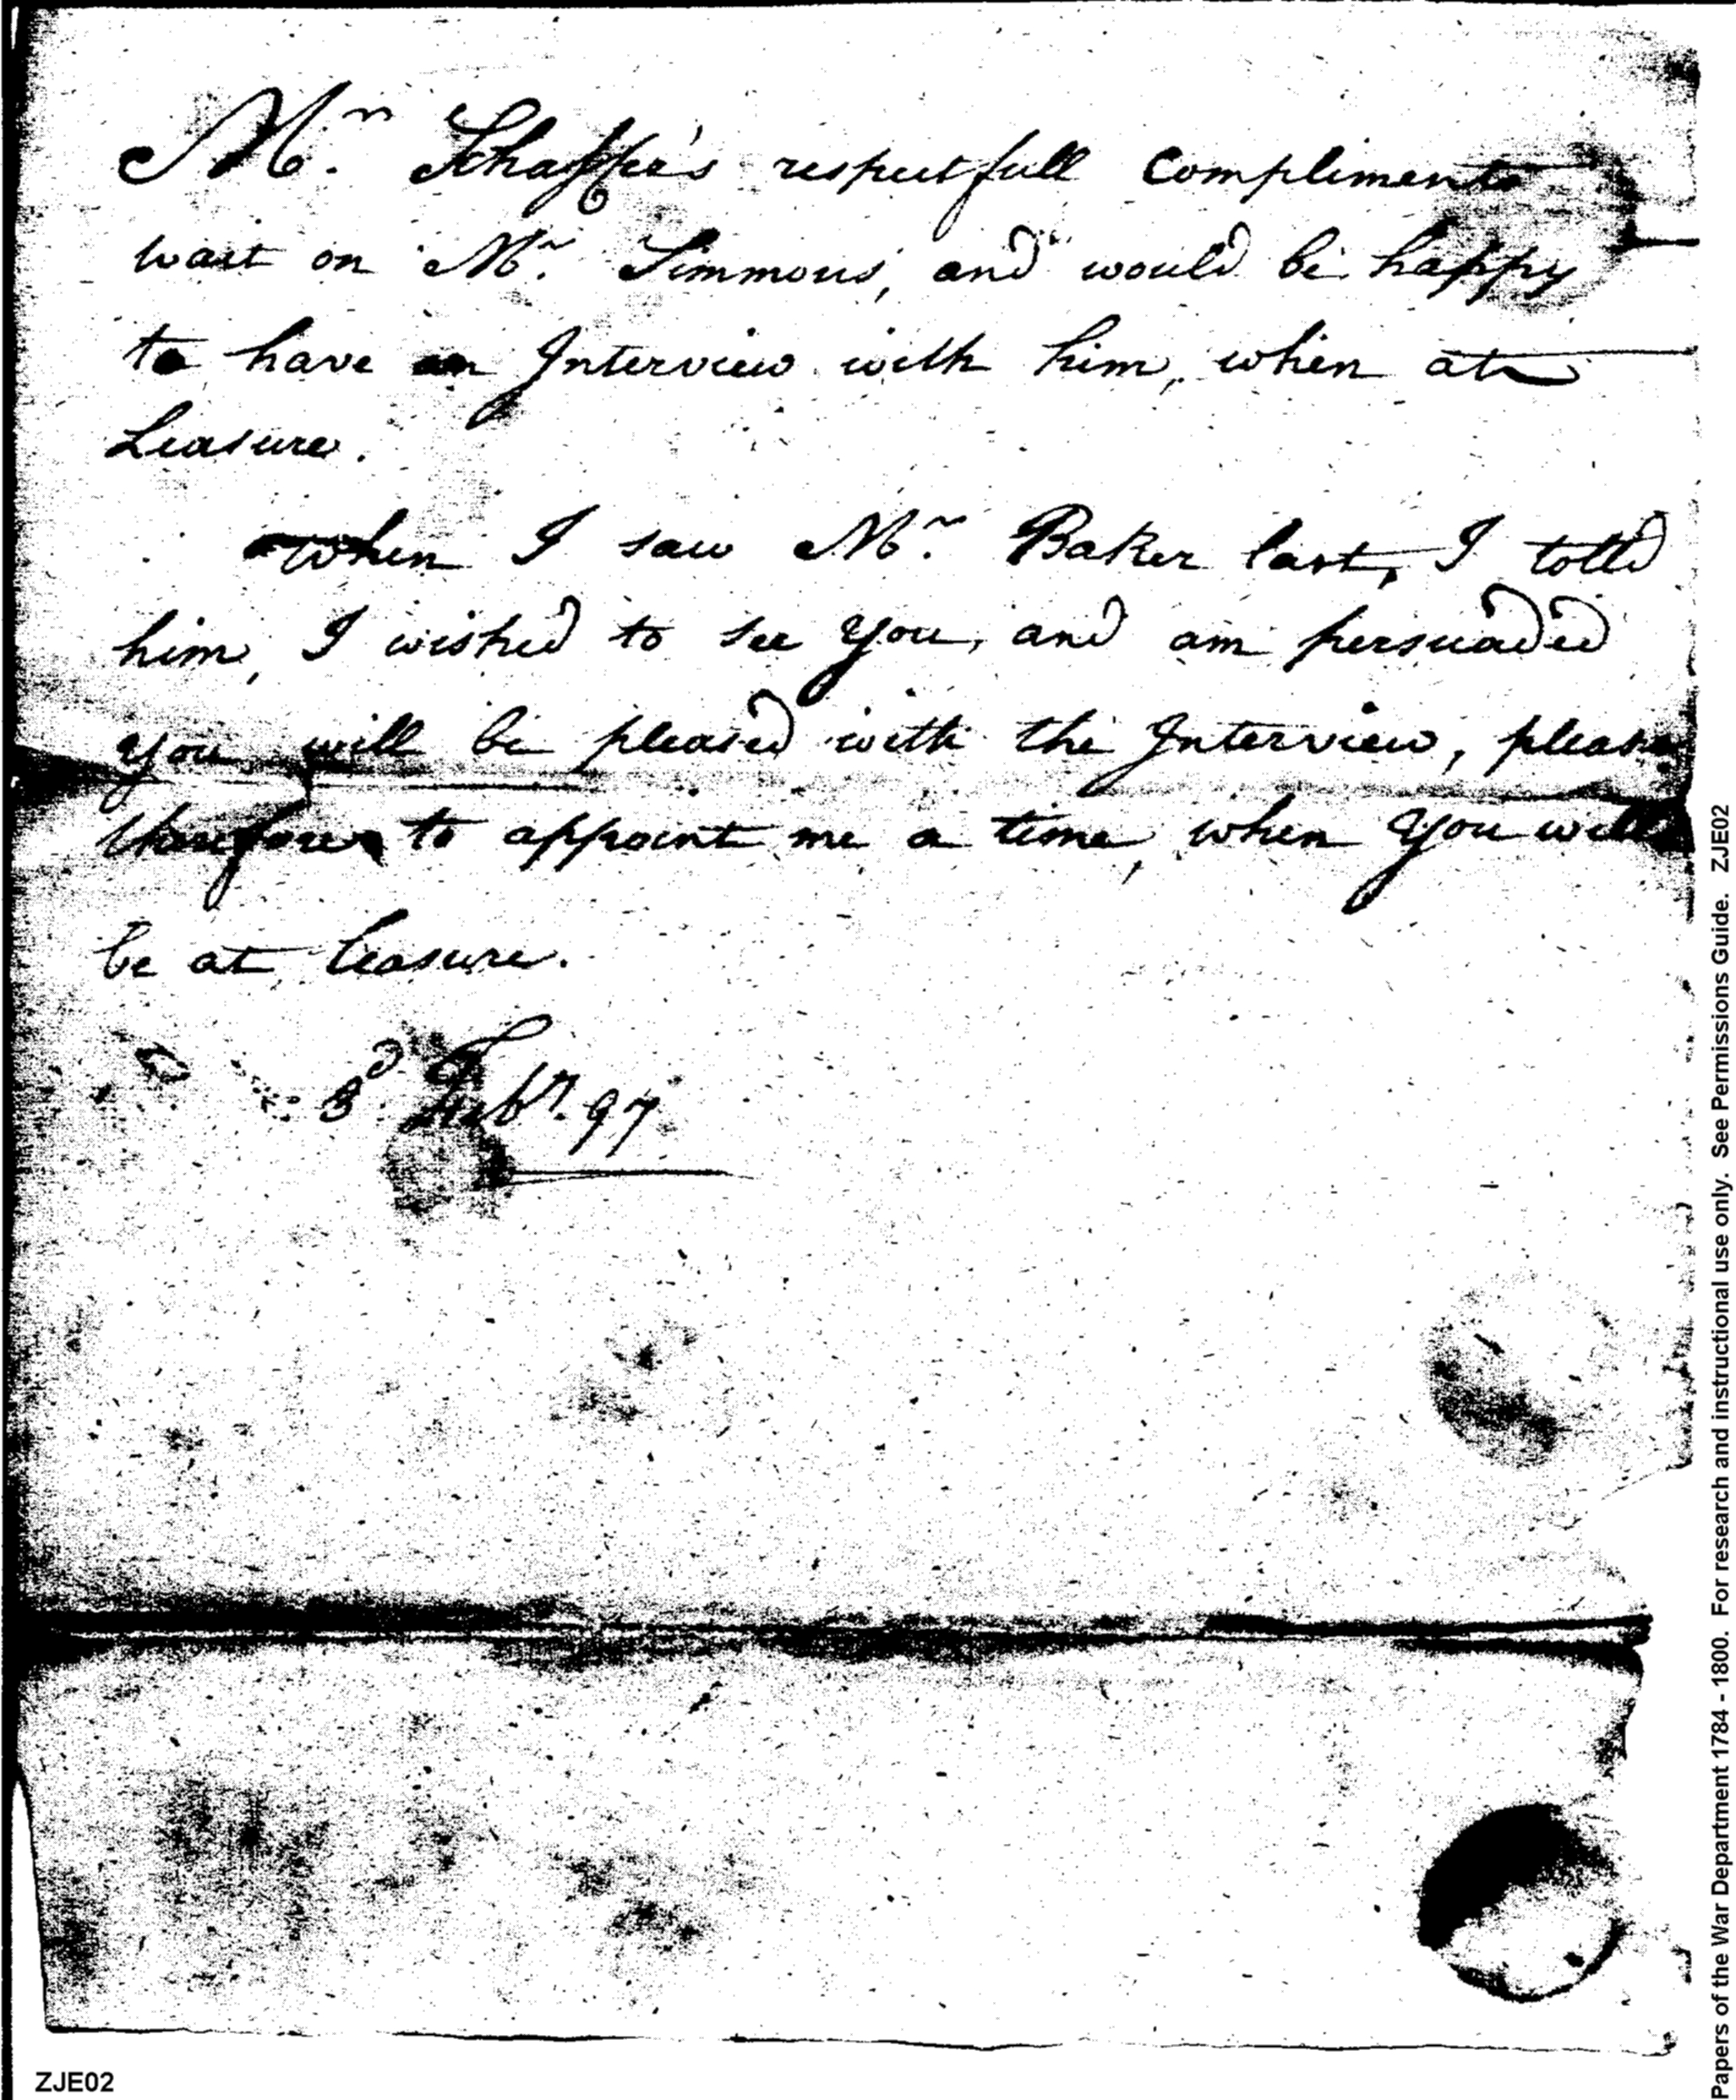 Mr. Schaffer's respectfull Compliments
wait on Mr. Simmons, and would be happy
to have an Interview with him, when at
Leasure.
When I saw Mr. Baker last, I tolld
him, I wished to see You, and am persuaded
you will be pleased with the Interview, please
therefore to appoint me a time, when You will
be at leasure.
3d. Feby. 97
Papers of the War Department 1784 - 1800. For research and instructional use only. See Permissions Guide. ZJE02
ZJE02